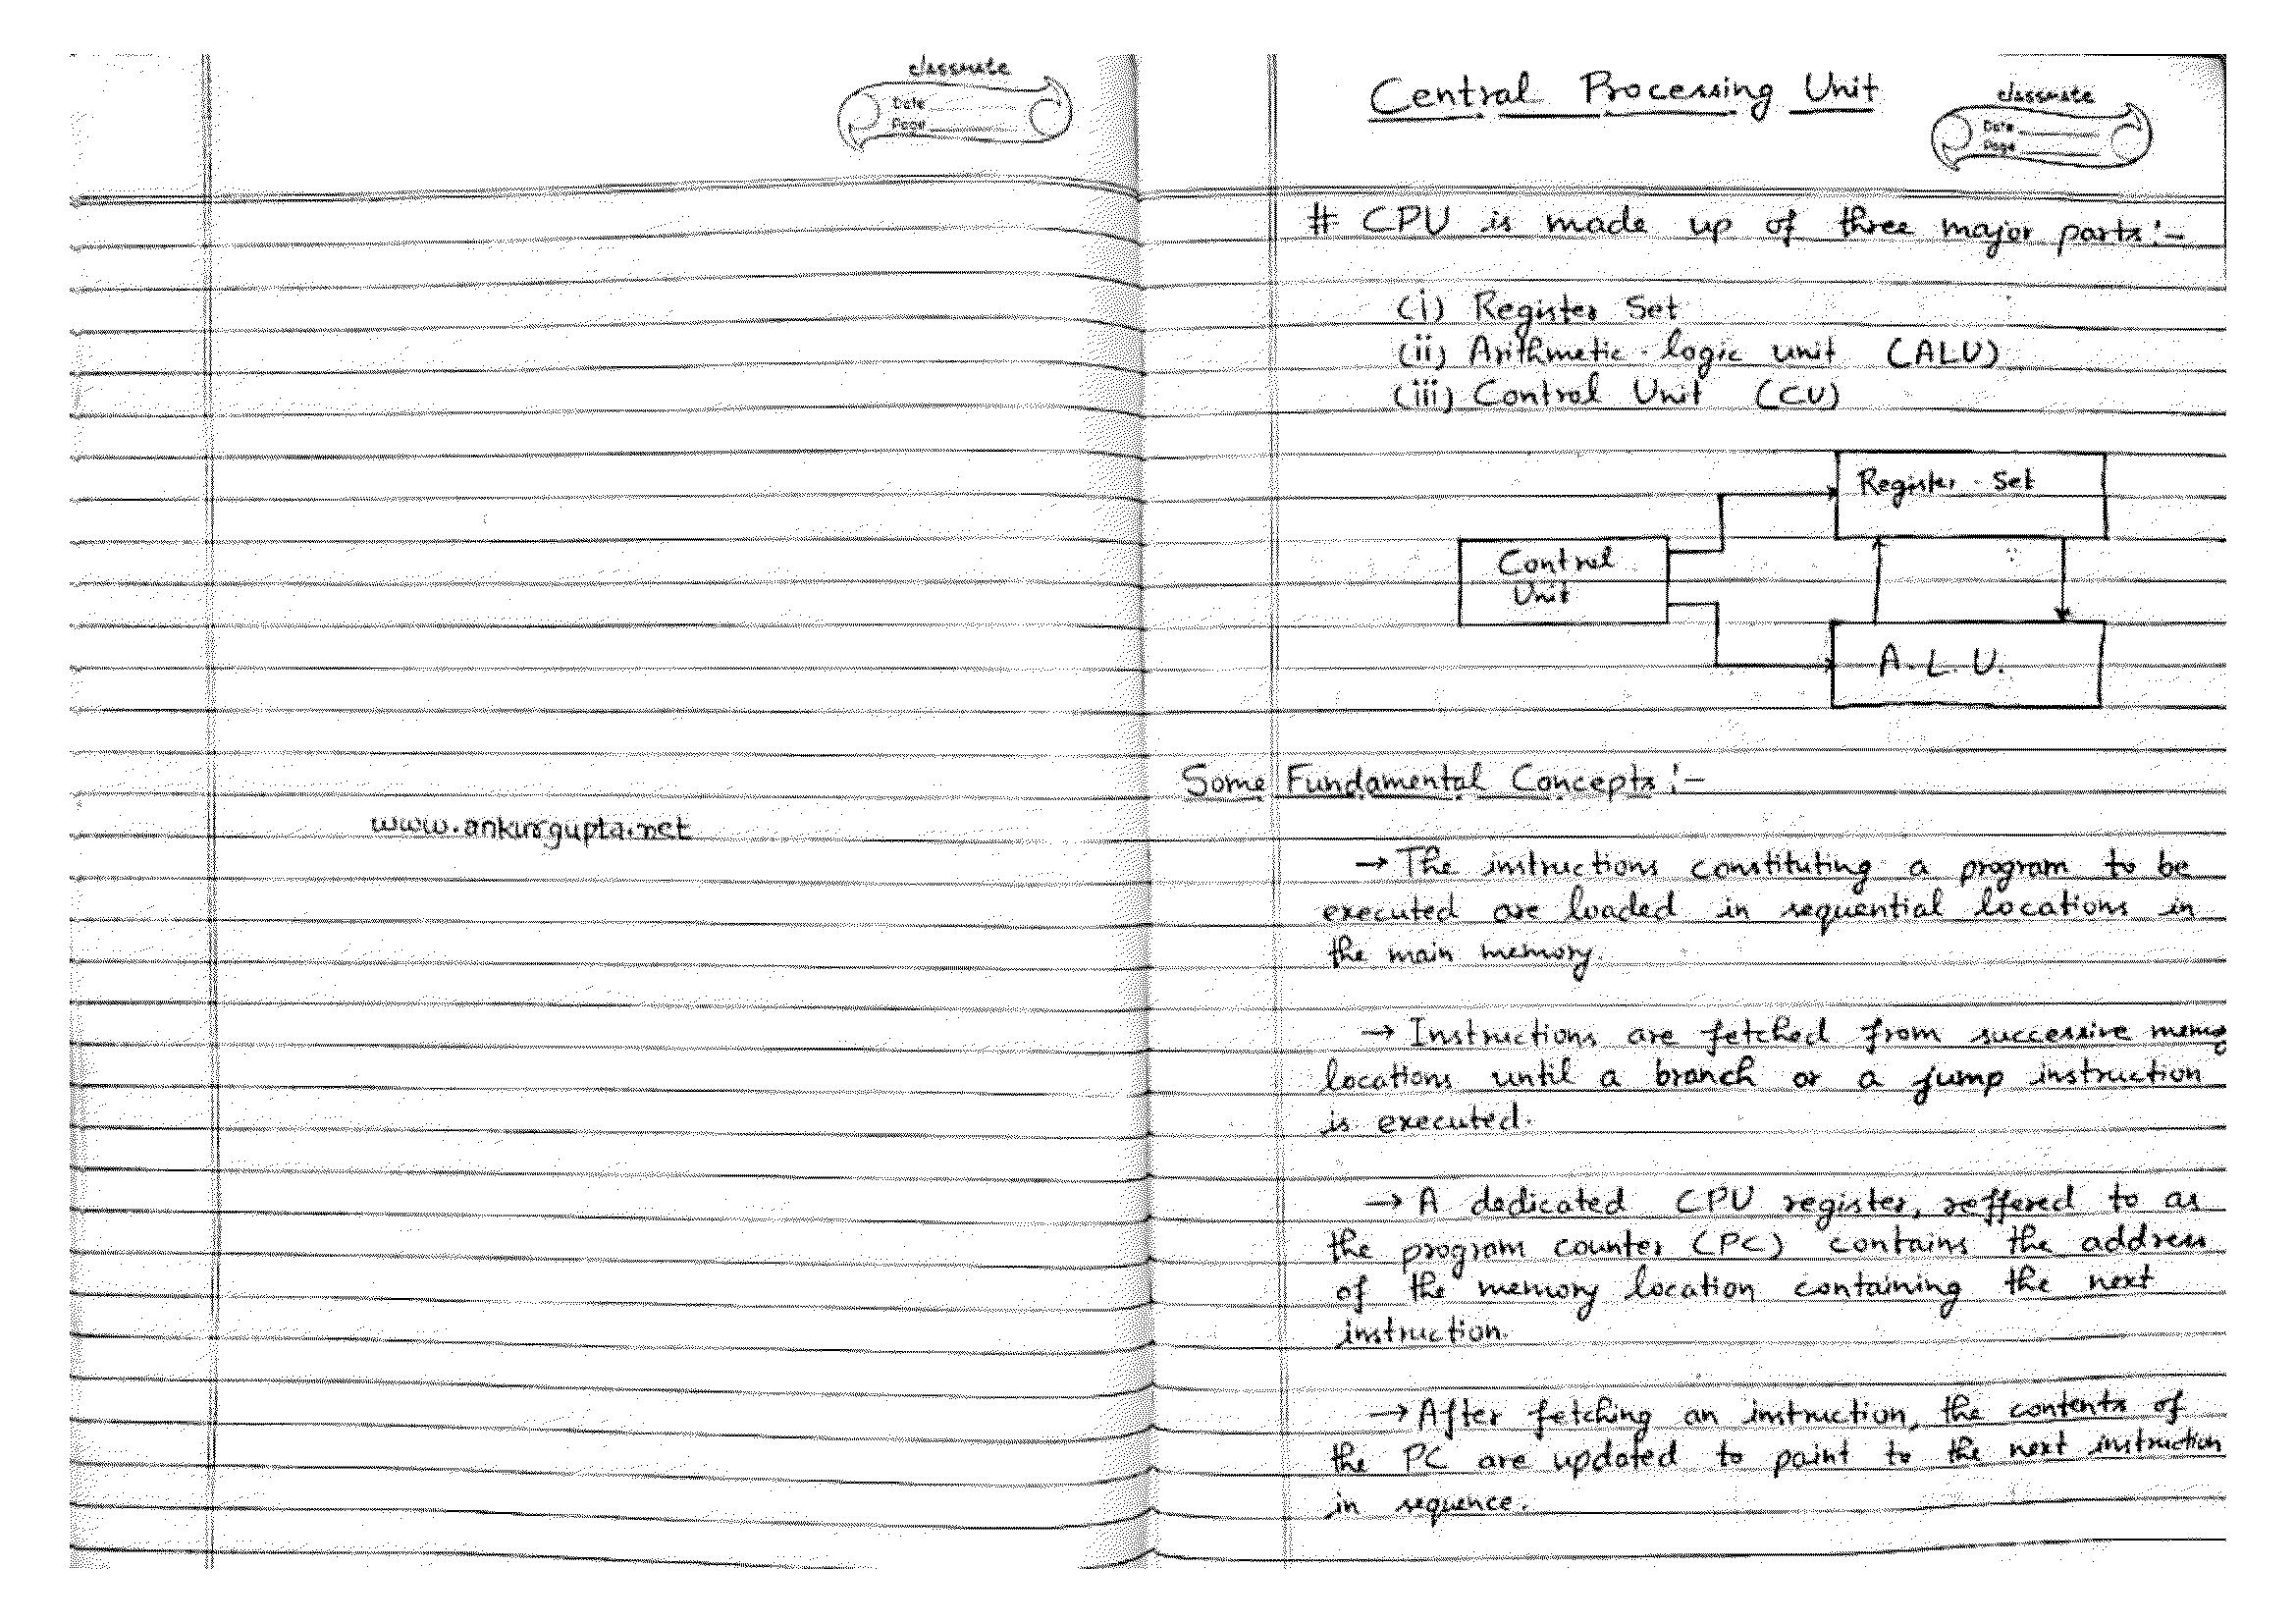 classmate
Date
Page
www.ankurgupta.net
Central Processing Unit
classmate
Date
Page
# CPU is made up of three major parts:-
(i) Register Set
(ii) Arithmetic-logic unit (ALU)
(iii) Control Unit (CU)
Register-Set
Control
Unit
A.L.U.
Some Fundamental Concepts:-
→ The instructions constituting a program to be
executed are loaded in sequential locations in
the main memory.
→ Instructions are fetched from successive
locations until a branch or a jump instruction
is executed.
→ A dedicated CPU register, reffered to as
the program counter (PC) contains the address
of the memory location containing the next
instruction.
→ After fetching an instruction, the contents of
the PC are updated to point to the next instruction
in sequence.